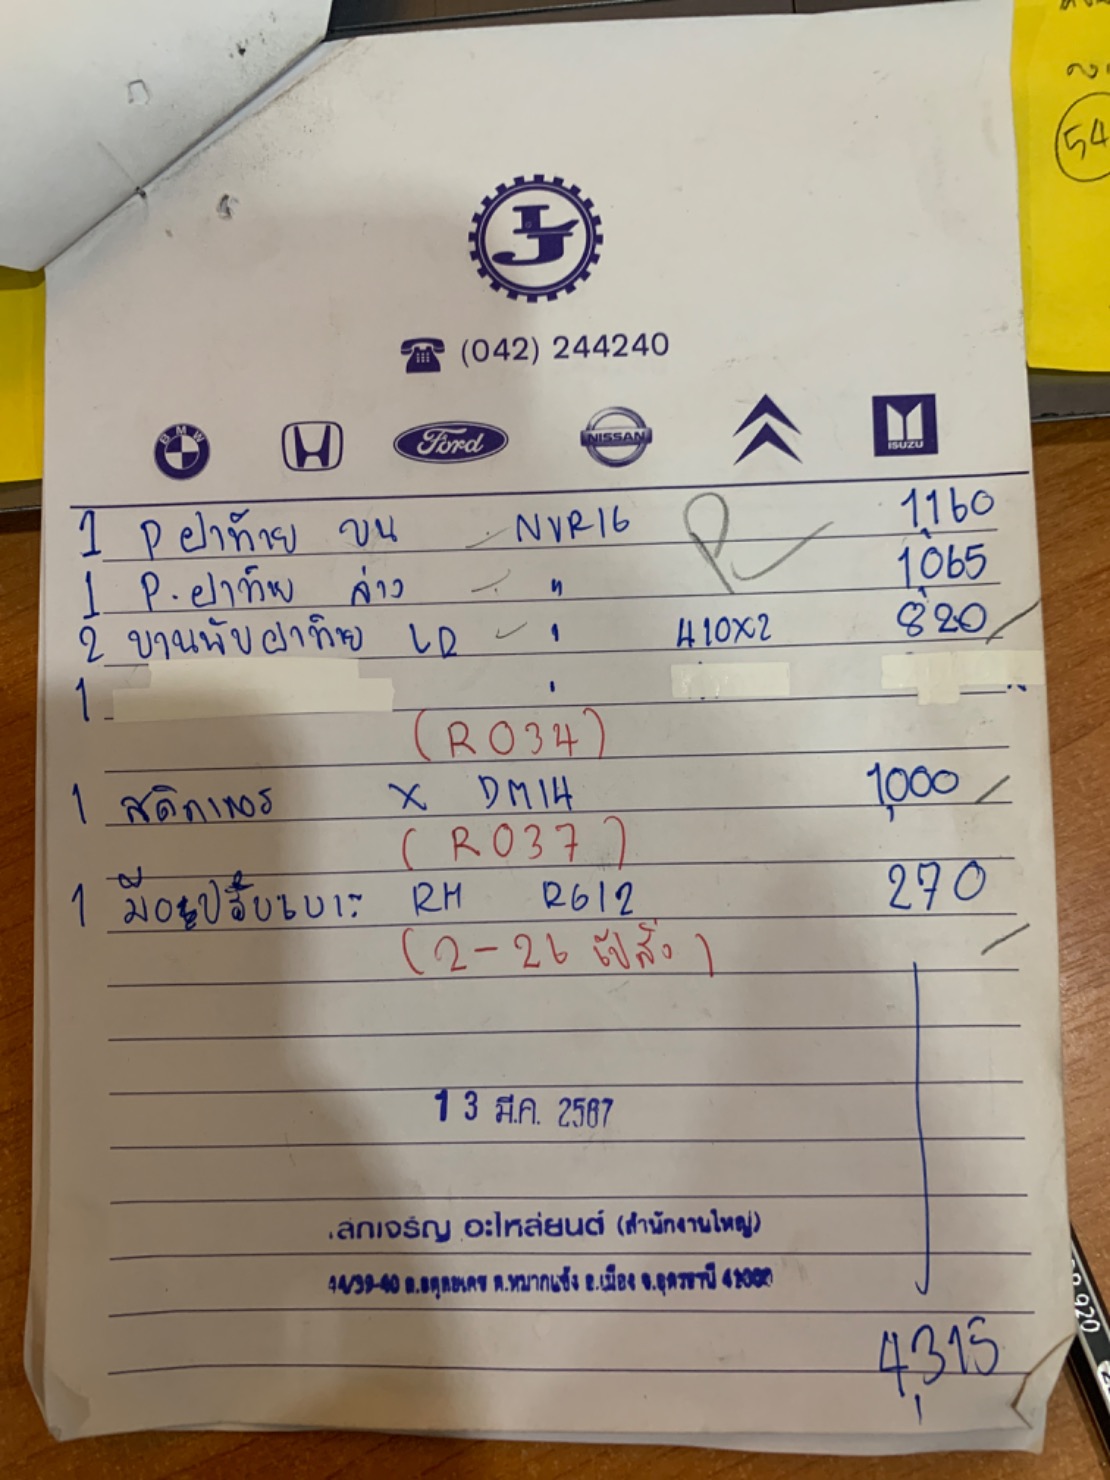 (042) 244240
BMW Ford NISSAN ISUZU
1 P ฝาท้าย บน NVR16 1,160
1 P. ฝาท้าย ล่าง " 1,065
2 บานพับฝาท้าย LR " 410x2 820
1
(R034)
1 สติกเกอร์ x DM14 1,000
(R037)
1 มือปรับเบาะ RH R612 270
(2-26 ไปส่ง)
13 มี.ค. 2567
อะไหล่ยนต์ (สำนักงานใหญ่)
44/39-40 ต.หมากแข้ง อ.เมือง จ.อุดรธานี 41000
4,315
54
920